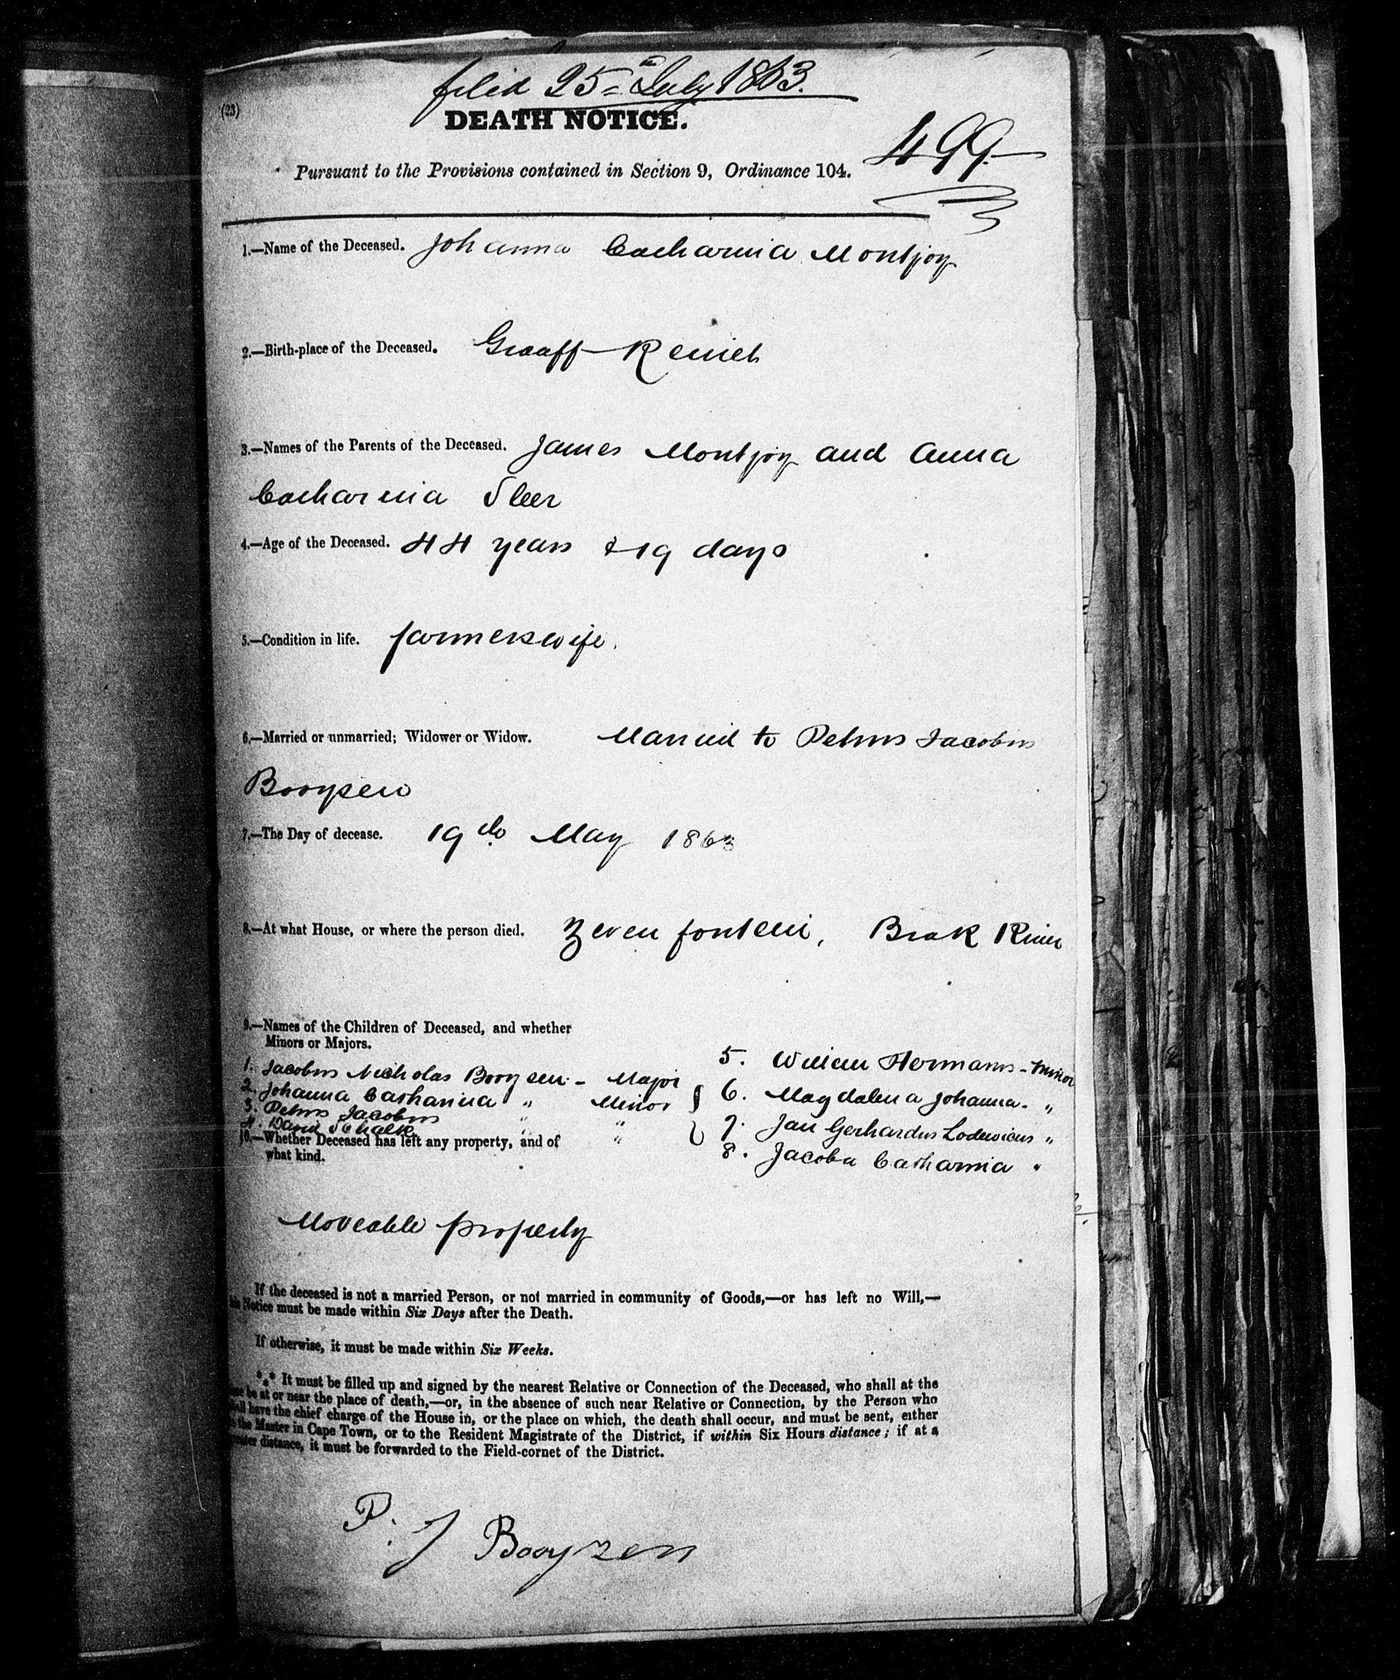 filed 25th July 1863.
(23)
DEATH NOTICE.
499
Pursuant to the Provisions contained in Section 9, Ordinance 104.
1.—Name of the Deceased. Johanna Catharina Montjoy
2.—Birth-place of the Deceased. Graaff-Reinet
3.—Names of the Parents of the Deceased. James Montjoy and Anna
Catharina Steer
4.—Age of the Deceased. 44 years & 19 days
5.—Condition in life. farmerswife.
6.—Married or unmarried; Widower or Widow. Married to Petrus Jacobus
Booysen
7.—The Day of decease. 19 do May 1863
8.—At what House, or where the person died. Zevenfontein, Brak River
9.—Names of the Children of Deceased, and whether
Minors or Majors.
1. Jacobus Nicholas Booysen - Major
2. Johanna Catharina " Minor
3. Petrus Jacobus " "
4. David Schalk " "
5. Willem Hermanus - minor
6. Magdalena Johanna. "
7. Jan Gerhardus Lodewicus "
8. Jacoba Catharina "
10.—Whether Deceased has left any property, and of
what kind.
Moveable property
If the deceased is not a married Person, or not married in community of Goods,—or has left no Will,—
Notice must be made within Six Days after the Death.
If otherwise, it must be made within Six Weeks.
*** It must be filled up and signed by the nearest Relative or Connection of the Deceased, who shall at the
be at or near the place of death,—or, in the absence of such near Relative or Connection, by the Person who
have the chief charge of the House in, or the place on which, the death shall occur, and must be sent, either
the Master in Cape Town, or to the Resident Magistrate of the District, if within Six Hours distance; if at a
distance, it must be forwarded to the Field-cornet of the District.
P. J Booyzen